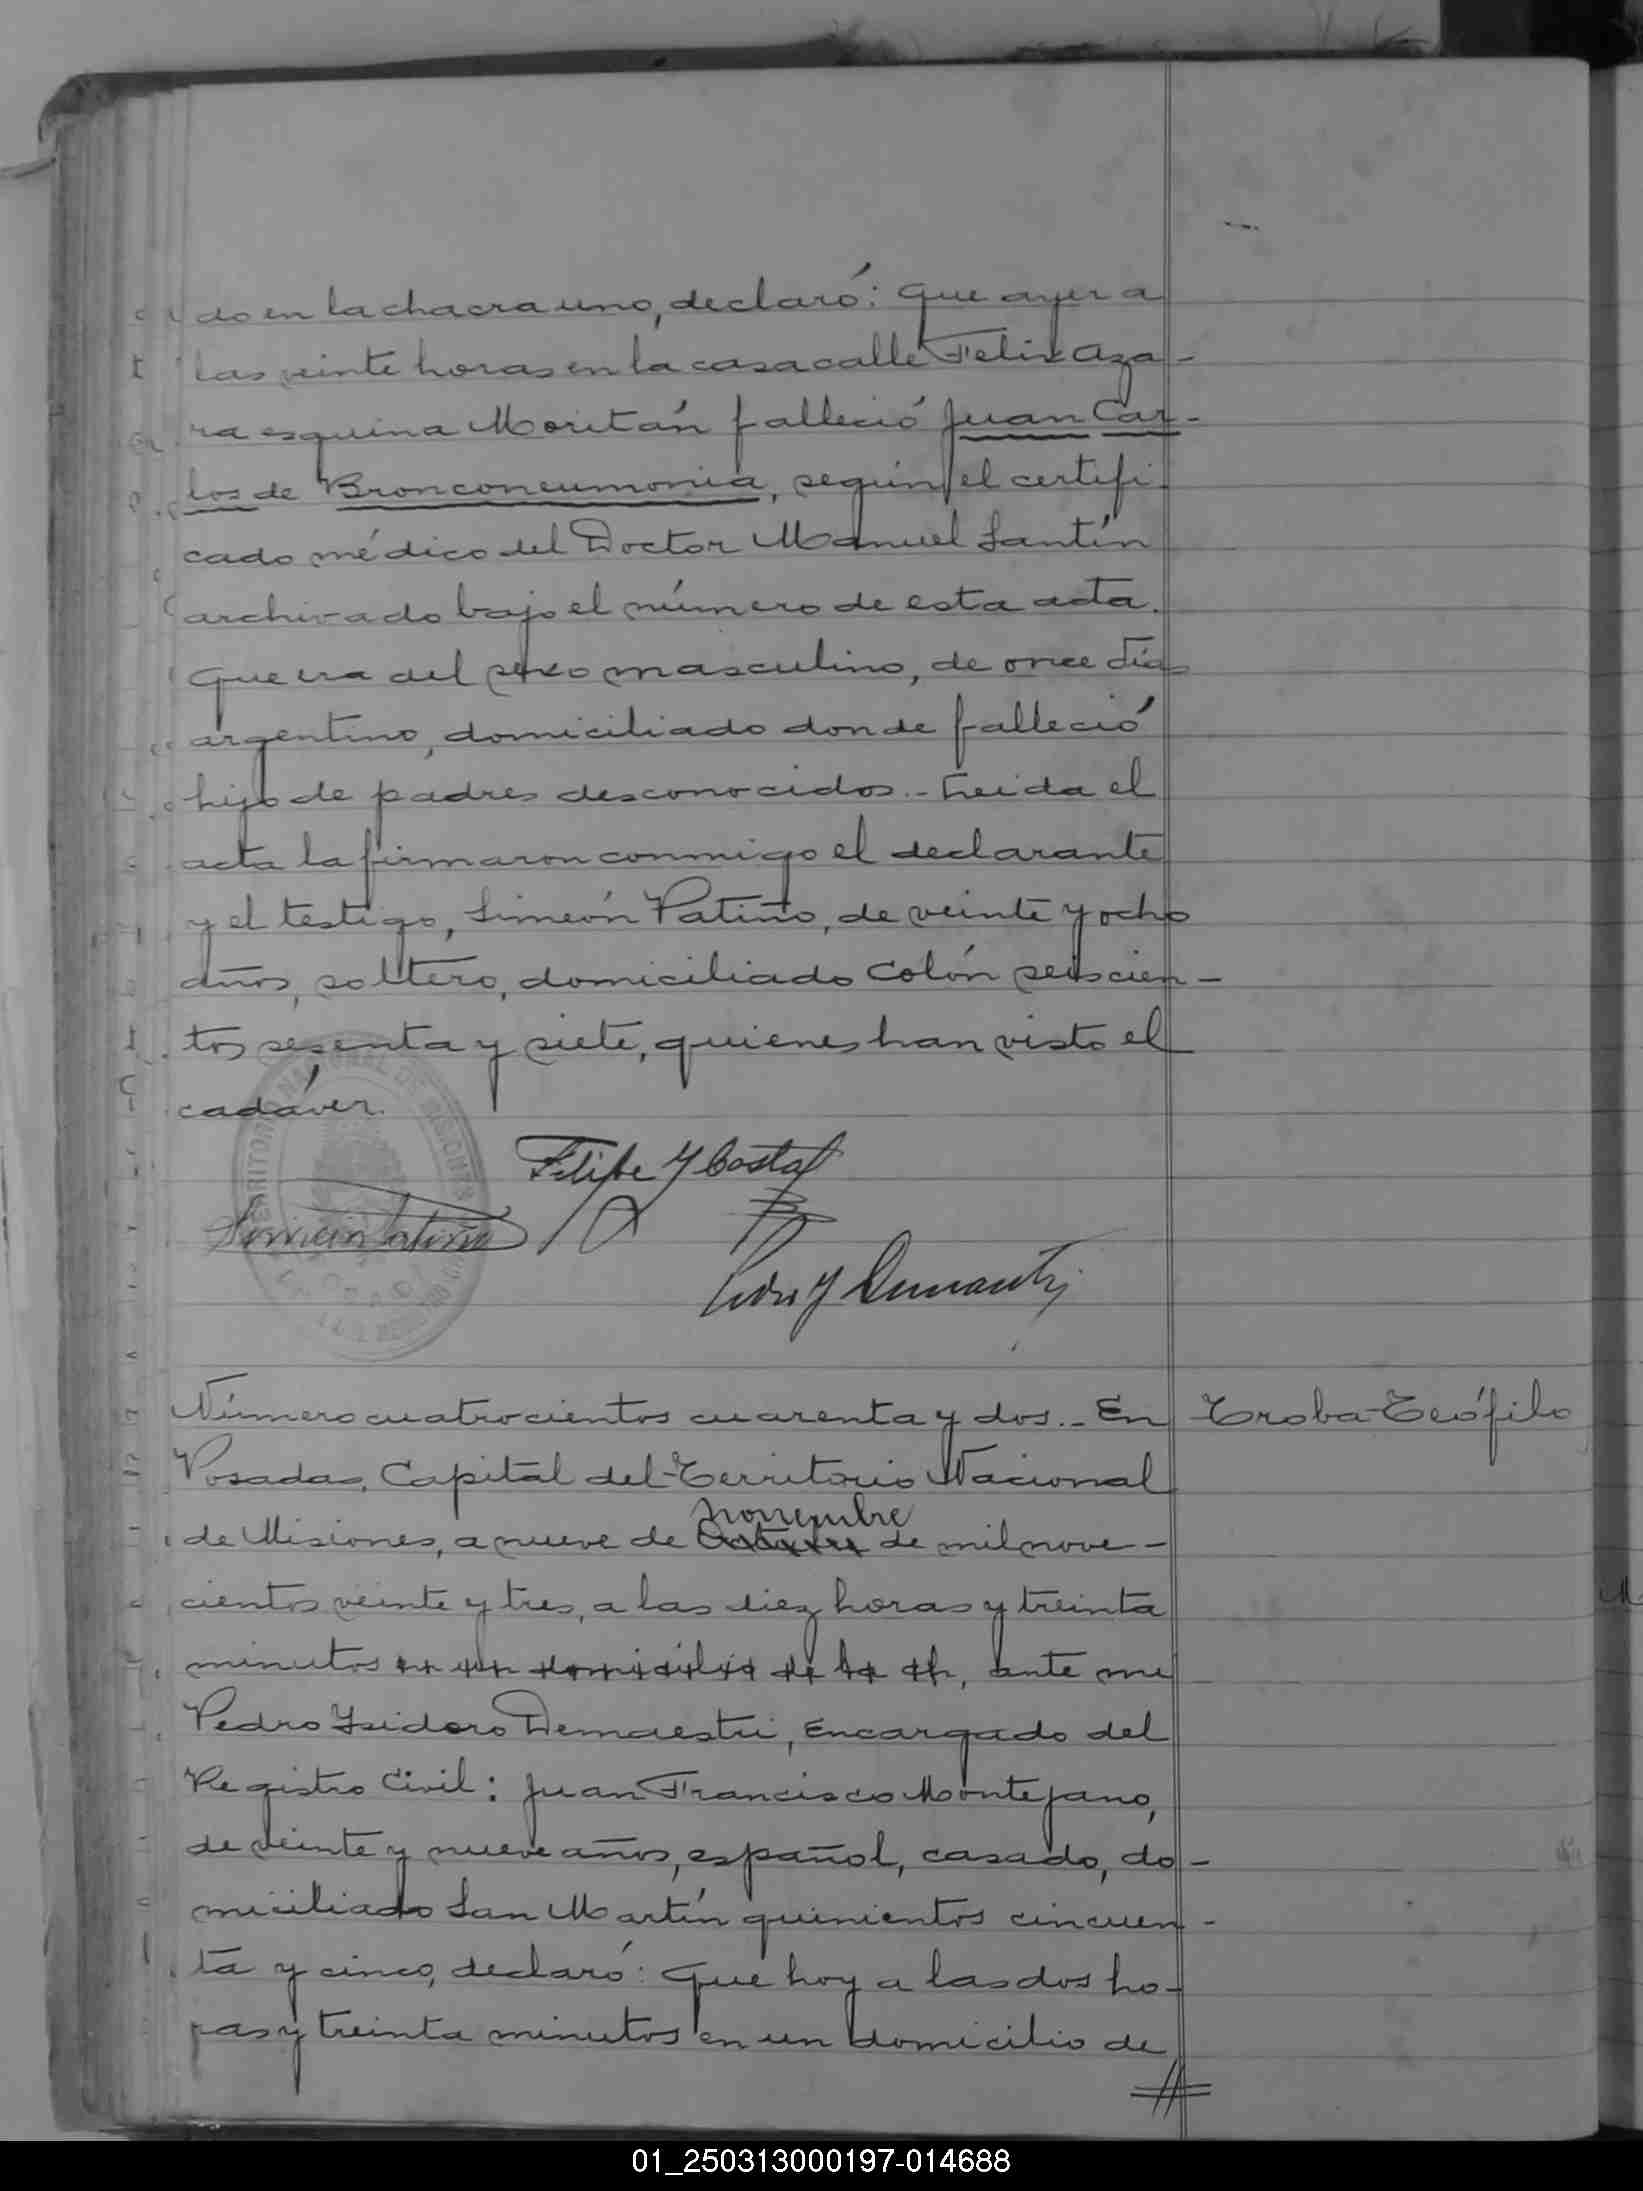 do en la chacra uno, declaró: Que ayer a
las veinte horas en la casa calle Felix Aza-
ra esquina Moritán falleció Juan Car-
los de Bronconeumonia, según el certifi-
cado médico del Doctor Manuel Santín
archivado bajo el número de esta acta.
Que era del sexo masculino, de once días
argentino, domiciliado donde falleció
hijo de padres desconocidos.- Leida el
acta la firmaron conmigo el declarante
y el testigo, Simeón Patiño, de veinte y ocho
años, soltero, domiciliado Colón seiscien-
tos sesenta y siete, quienes han visto el
cadáver.
Felipe Y Costa
Simeón Patiño
Pedro Y Demaestri
Número cuatrocientos cuarenta y dos.- En
Troba Teófilo
Posadas, Capital del Territorio Nacional
noviembre
de Misiones, a nueve de Octubre de mil nove-
cientos veinte y tres, a las diez horas y treinta
minutos en un domicilio de la ch, ante mi
Pedro Ysidoro Demaestri, Encargado del
Registro Civil: Juan Francisco Montejano,
de veinte y nueve años, español, casado, do-
miciliado San Martín quinientos cincuen-
ta y cinco, declaró: Que hoy a las dos ho-
ras y treinta minutos en un domicilio de
01_250313000197-014688